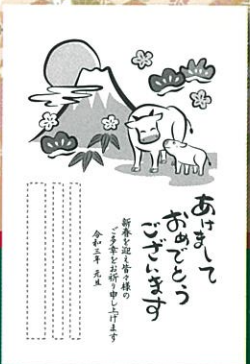 あけまして
おめでとう
ございます
新春を迎え皆々様の
ご多幸をお祈り申し上げます
令和三年 元旦